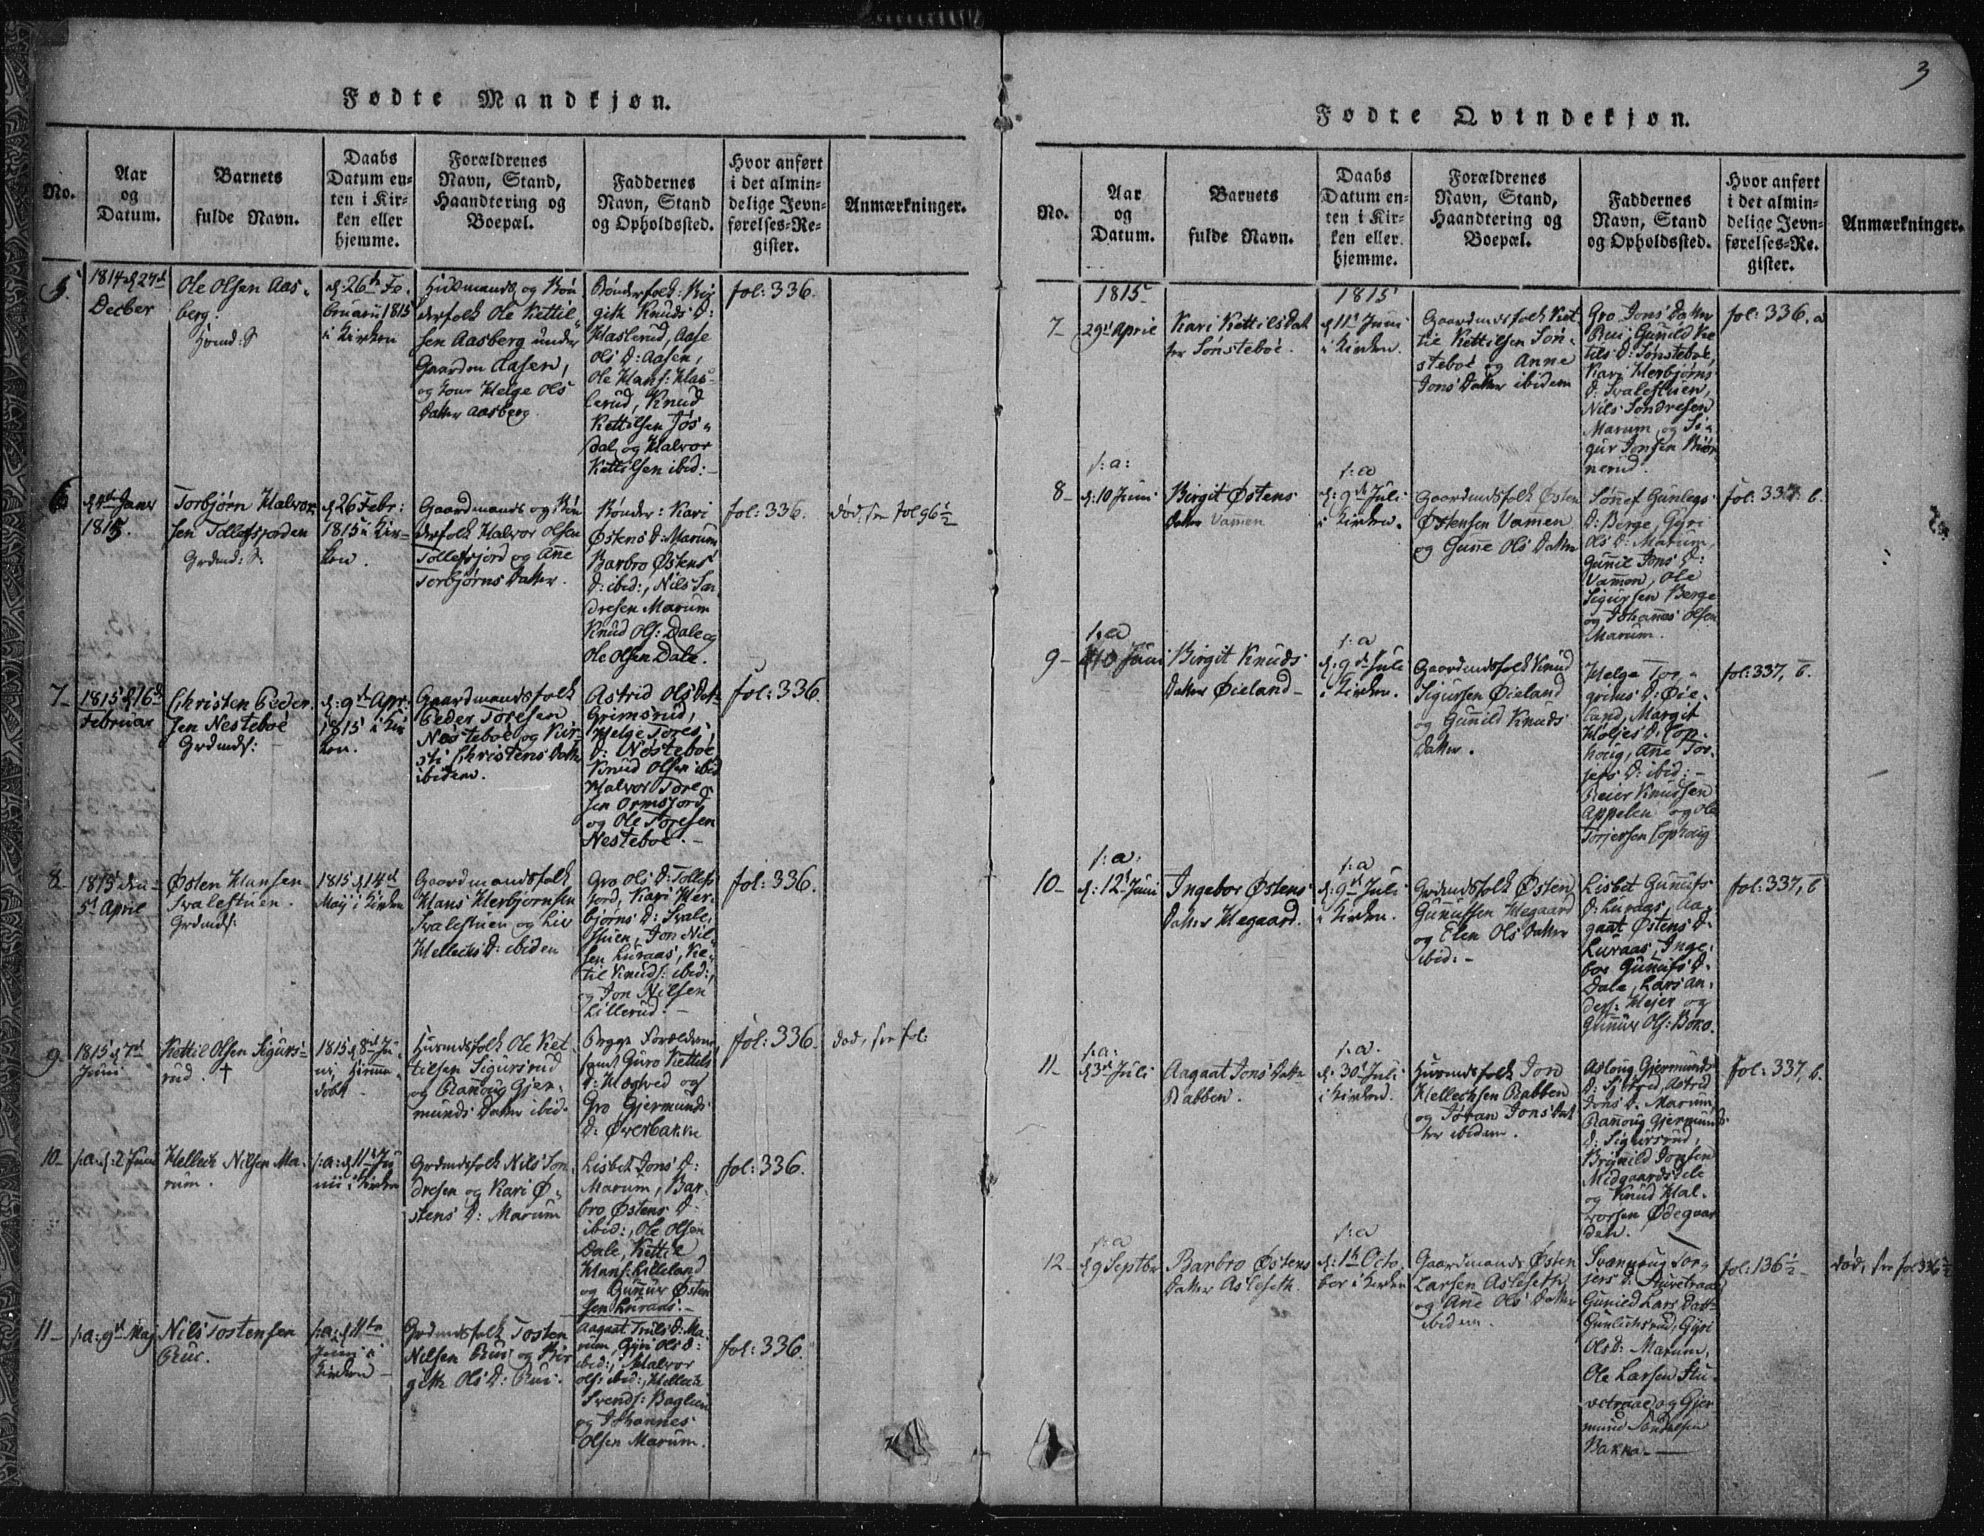 Fødte Mandkjøn.
No.
Aar
og
Datum.
Barnets
fulde Navn.
Daabs
Datum en-
ten i Kir-
ken eller
hjemme.
Forældrenes
Navn, Stand,
Haandtering og
Boepæl.
Faddernes
Navn, Stand
og Opholdssted.
Hvor anført
i det almin-
delige Jevn-
førelses-Re-
gister.
Anmærkninger.
5.
1814 d 27de
Decber
Ole Olsen Aas-
berg.
d: 26th Fe-
bruarii 1815
i Kirken
Huusmands og Bøn
derfolk Ole Kettil
sen Aasberg under
Gaarden Aasen,
og Helge Ols
Datter Aasberg.
Bønderfolk: Bir
gith Knuds D:
Haslerud, Aase
Ols D: Aasen,
Ole Hans: Has-
lerud, Knud
Kettilsen Jøs-
dal, og Halvor
Kettilsen ibid:
fol: 336.
6
Janr
1815.
Torbjørn Halvor
sen Tollefsjorden
Grdmd: S.
d 26 Febr:
1815 i Kir-
ken.
Gaardmands og Bøn
derfolk Halvor Olsen
Tollefsjord og Ane
Torbjørns Datter.
Bønder: Kari
Østens D: Marum
Barbro Østens
D: ibid:, Nils Son
dresen Marum
Knud Ols: Dale og
Ole Olsen Dale.
fol: 336.
død, see fol 96 1/2
7-
1815 d 16de
Februar
Christen Peder
sen Nesteboe
Grdmds:
d: 9de Apr.
1815 i Kir
ken.
Gaardmandsfolk
Peder Toresen
Nesteboe og Kir-
sti Christens Datter
ibidem.
Astrid Ols Dat-
Grimsrud,
Helge Tores
D: Nesteboe
Knud Olsen ibid
Halvor Tore-
sen Ormsjord
og Ole Toresen
Nesteboe.
fol: 336
8-
1815 den
5t April
Østen Hansen
Svalestuen.
Grdmds:
1815 d 14d
Maj i Kirken
Gaardmandsfolk
Hans Herbjørnsen
Svalestuen og Liv
Hellecks D: ibidem
Gro Ols D: Tollefs
jord, Kari Her-
bjørns D: Svale-
stuen, Jon Nil-
sen Luraas, Ke-
til Knuds: ibid:,
og Jon Nilsen
Lillerud.
fol: 336.
9
1815 d 7d
Juni
Kettil Olsen Sigurs-
rud. †
1815 d 8d Ju-
ni, hiemme-
døbt
Huusmdsfolk Ole Ket
tilsen Sigursrud
og Rannoug Gjer-
munds Datter ibid.
Begge Forældrene
samt Guro Kettils
D: Hogved og
Gro Gjermunds
D: Øverbakke
fol: 336.
død, see fol
10-
s: a: d: 2 Juni
Helleck Nilsen Ma-
rum.
s: a: d 11t Ju
nii i Kirken
Grdmdsfolk Nils Son
dresen og Kari Ø-
stens D: Marum
Lisbet Jons D:
Marum, Bar-
bro Østens D:
ibid:, Ole Olsen
Dale, Kettil
Hans: Lilleland
og Gunur Østen
sen Luraas.
fol: 336.
11-
s: a: 9d Maj
Nils Tostensen
Rue.
s: a: d 11te
Juni i
Kirken
Grdmdsfolk Tosten
Nilsen Rue og Bir
gith Ols D: Rue.
Aagaat Truls D: Ma-
rum, Gyri Ols D:
ibid:, Halvor
Ols: ibid:, Helleck
Svends: Bøglien
og Johannes
Olsen Marum.
fol: 336.
3
Fødte Qvindekjøn.
No.
Aar
og
Datum.
Barnets
fulde Navn.
Daabs
Datum en-
ten i Kir-
ken eller
hjemme.
Forældrenes
Navn, Stand,
Haandtering og
Boepæl.
Faddernes
Navn, Stand
og Opholdssted.
Hvor anført
i det almin-
delige Jevn-
førelses-Re-
gister.
Anmærkninger.
7-
1815
29d April
Kari Kettils Dat
ter Sønsteboe.
1815
d 11t Juni
i Kirken.
Gaardmdsfolk Ket
til Kettilsen Søn-
steboe og Anne
Jons Datter ibidem
Gro Jons Datter
Rui, Gunild Ke
tils D: Sønsteboe,
Kari Herbjørns
D: Svalestuen,
Nils Sondresen
Marum, og Si-
gur Jonsen Biør
nerud.
fol: 336. a
8-
s: a:
d: 10 Juni
Birgit Østens
Datter Vamen
s: a
d: 9de Juli
i Kirken.
Gaardmdsfolk Østen
Østensen Vamen
og Gune Ols Datter
Sønnef Gunlegs
D: Berge, Gyri
Ols D: Marum,
Gunil Jons D:
Vamen, Ole
Sigursen Berge
og Johanes Olsen
Marum.
fol: 337. b.
9-
s: a
10 Juni
Birgit Knuds
Datter Øieland
s: a
d: 9de Juli
i Kirken.
Gaardmdsfolk Knud
Sigursen Øieland
og Gunild Knuds
Datter.
Helge Tor-
grims D: Øie-
land, Margit
Høljes D: Lop-
houg, Ane Tor-
jers D: ibid:
Reier Knudsen
Appelen og Ole
Torjersen Lophoug
fol: 337, b.
10-
s: a:
d: 12t Juni
Ingebor Østens
Datter Hegaard.
s: a
d: 9de Juli
i Kirken.
Grdmdsfolk Østen
Gunulfsen Hegaard
og Elen Ols Datter
ibid:
Lisbet Gunulfs
D: Luraas, Aa-
gaat Østens D:
Luraas, Inge-
bor Gunulfs D:
Dale, Lars An-
ders: Hejer og
Gunur Ols: Bøno.
fol: 337, b
11-
s: a:
d 3d Juli
Aagaat Jons Datter
Rabben.
s: a.
d: 30t Juli
i Kirken.
Huusmdsfolk Jon
Hellechsen Rabben
og Jøran Jons Dat
ter ibidem.
Asloug Gjermunds
D: Sjøtred, Astrid
Jons D: Marum,
Ranoug Gjermunds
D: Sigursrud,
Brynild Jonsen
Midgaardsdele
og Knud Hal-
vorsen Ødegaar
den.
fol: 337, b.
12-
s: a
d 9 Septbr
Barbro Østens
Datter Aslesetk.
s: a
d: 1te Octo
ber i Kirken
Gaardmands Østen
Larsen Asleseth
og Ane Ols Datter
ibidem.
Svannoug Tor-
jers D: Stuvetraae
Gunild Lars Datt-
Gunlichsrud, Gyri
Ols D: Marum,
Ole Larsen Stu-
vetraae og Gjer
mund Sondresen
Bakka.
fol: 136 1/2
død, see fol 336 1/2